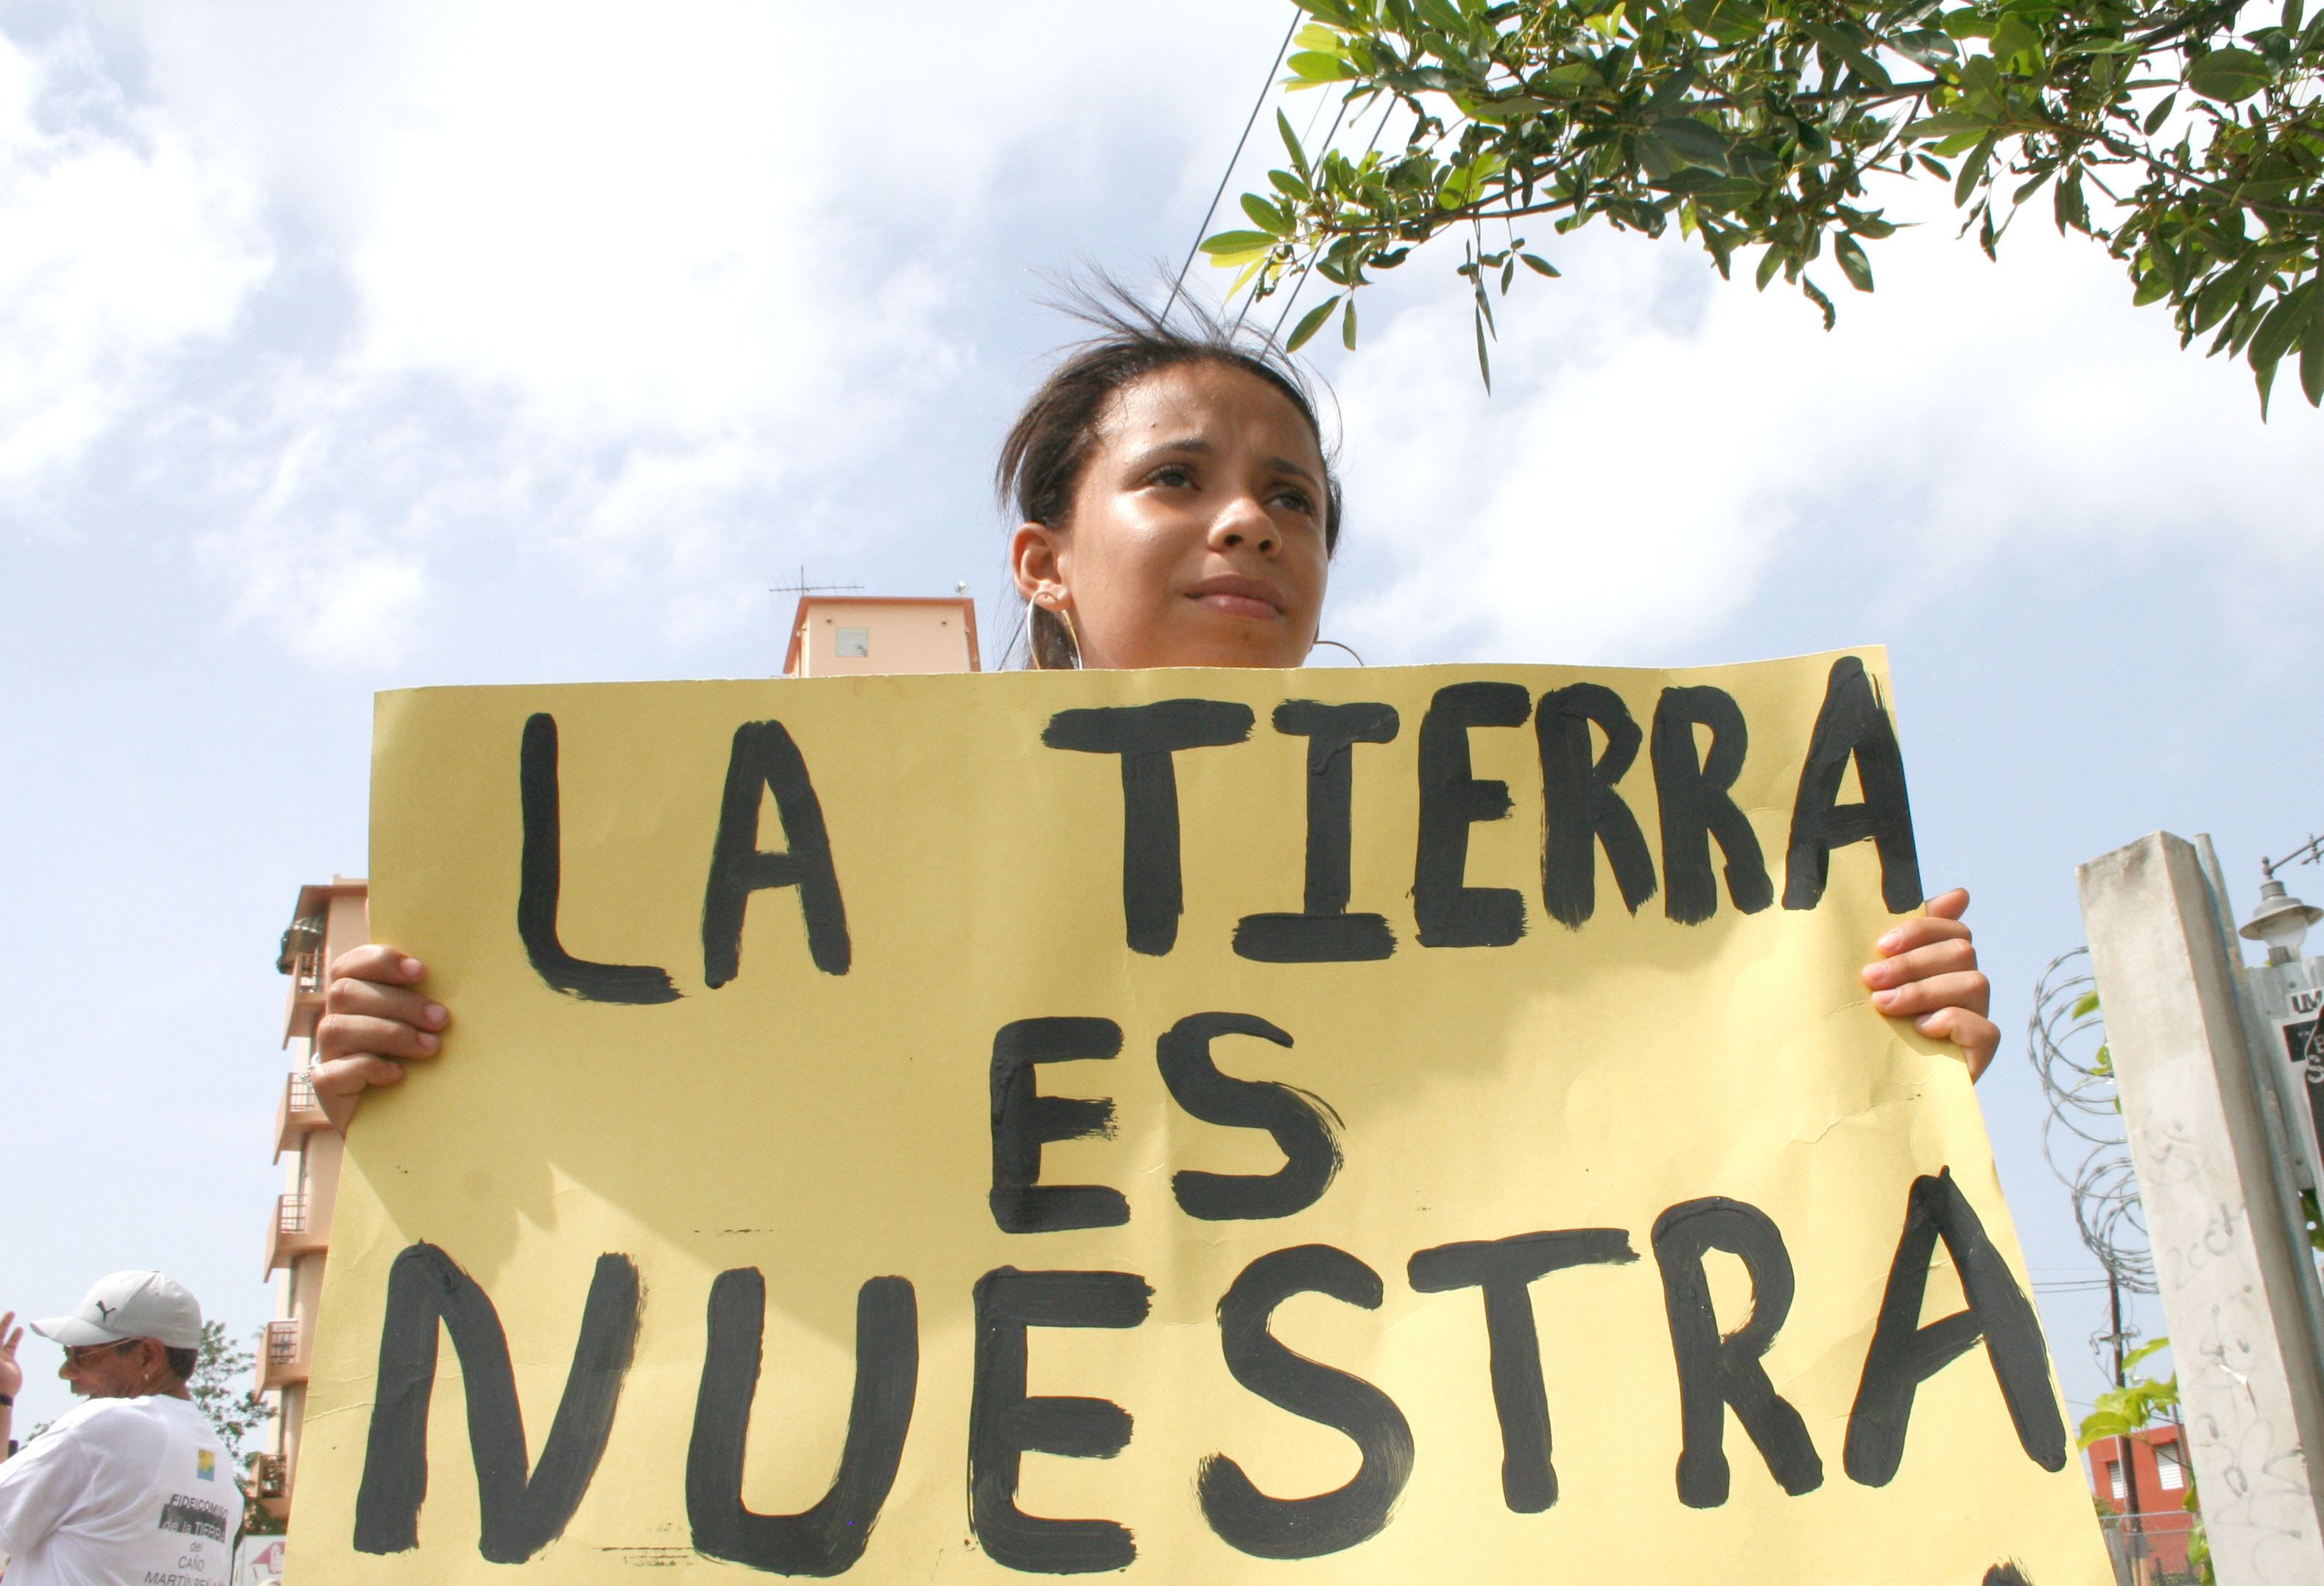 LA TIERRA
ES
NUESTRA
FIDEICOMISO
de la TIERRA
del
CAÑO
MARTÍN PEÑA